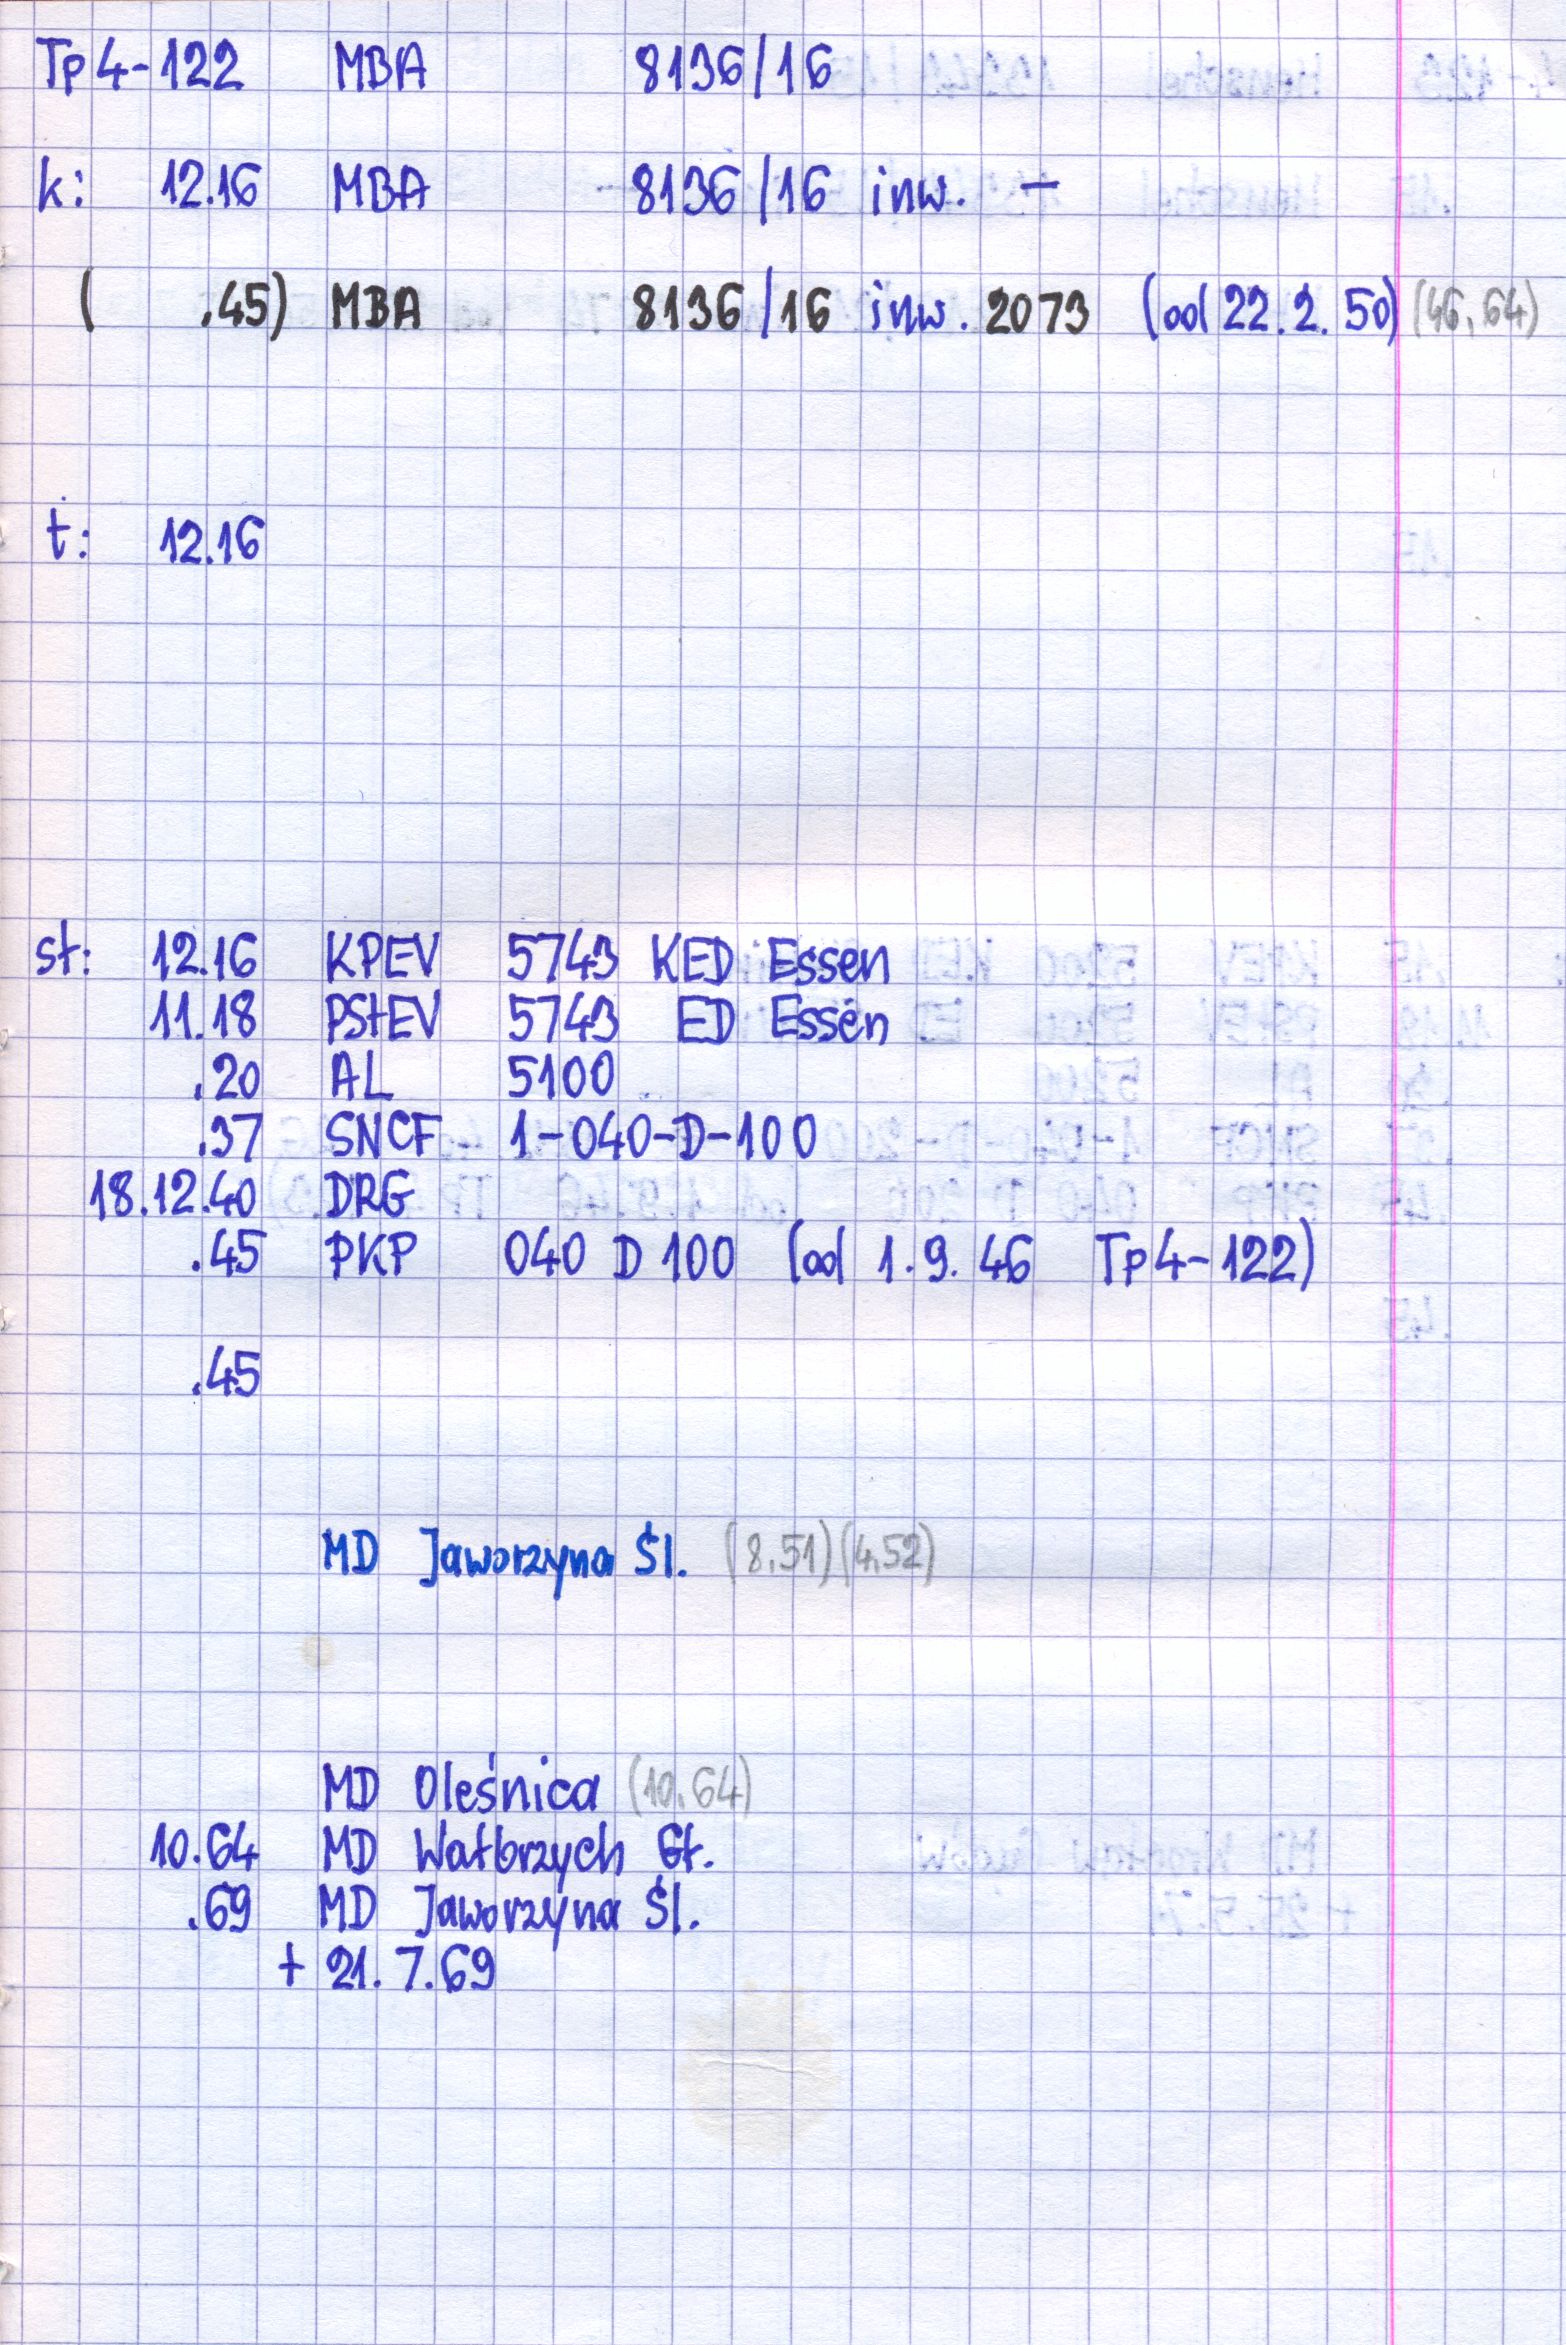 Tp4-122 MBA 8136/16
k: 12.16 MBA 8136/16 inw. –
( .45) MBA 8136/16 inw. 2073 (od 22.2.50) (46,64)
t: 12.16
st: 12.16 KPEV 5743 KED Essen
11.18 PStEV 5743 ED Essen
.20 AL 5100
.37 SNCF 1-040-D-100
18.12.40 DRG
.45 PKP 040 D 100 (od 1.9.46 Tp4-122)
.45
MD Jaworzyna Śl. (8.51)(4.52)
MD Oleśnica (10.64)
10.64 MD Wałbrzych Gł.
.69 MD Jaworzyna Śl.
+ 21.7.69